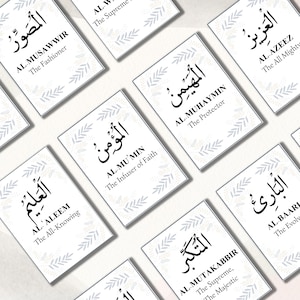 المصور
AL-MUSAWWIR
The Fashioner
The Supreme
العزيز
AL-AZIEZ
المهيمن
AL-MUHAYMIN
The Protecter
المؤمن
AL-MU'MIN
The Infuser of Faith
العليم
AL-'ALEEM
The All-Knowing
البارئ
المتكبر
AL-MUTAKABBIR
The Supreme,
The Majestic